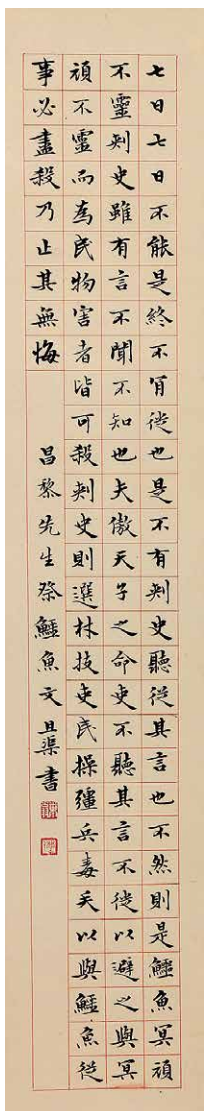 七日七日不能是終不肯徙也是不有刺史聽從其言也不然則是鱷魚冥頑
不靈刺史雖有言不聞不知也夫傲天子之命吏不聽其言不徙以避之與冥
頑不靈而為民物害者皆可殺刺史則選材技吏民操彊兵毒矢以與鱷魚從
事必盡殺乃止其無悔
昌黎先生祭鱷魚文 且渠書